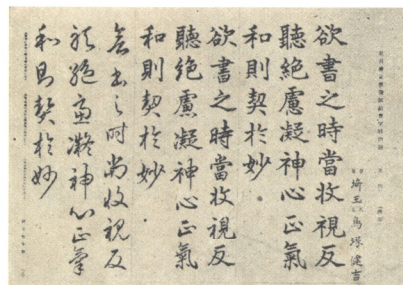 埼玉 鳥塚健吉
欲書之時當收視反
聽絶慮凝神心正氣
和則契於妙
欲書之時當收視反
聽絶慮凝神心正氣
和則契於妙
欲書之時當收視反
聽絶慮凝神心正氣
和則契於妙